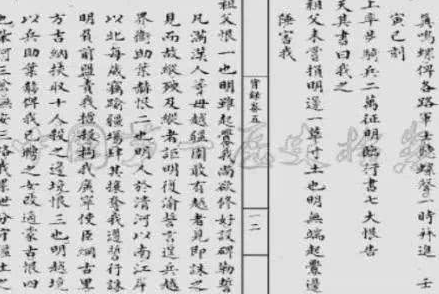 具鳴螺俾各路軍士聽螺聲一時並進 壬
寅巳刻
上率步騎兵二萬征明臨行書七大恨告
天其書曰我之
祖父未嘗損明邊一草寸土也明無端起釁邊
陲害我
實錄卷五
一二
祖父恨一也明雖起釁我尚欲修好設碑勒誓
凡滿漢人等毋越疆圉敢有越者見即誅之
見而故縱殃及縱者詎明復渝誓言逞兵越
界衛助葉赫恨二也明人於清河以南江岸
以北每歲竊踰疆場肆其攘奪我遵誓行誅
明負前盟責我擅殺拘我廣寧使臣綱古里
方吉納挾取十人殺之邊境恨三也明越境
以兵助葉赫俾我已聘之女改適蒙古恨四
也柴河三岔撫安三路我累世分守疆土之
中国第一历史档案